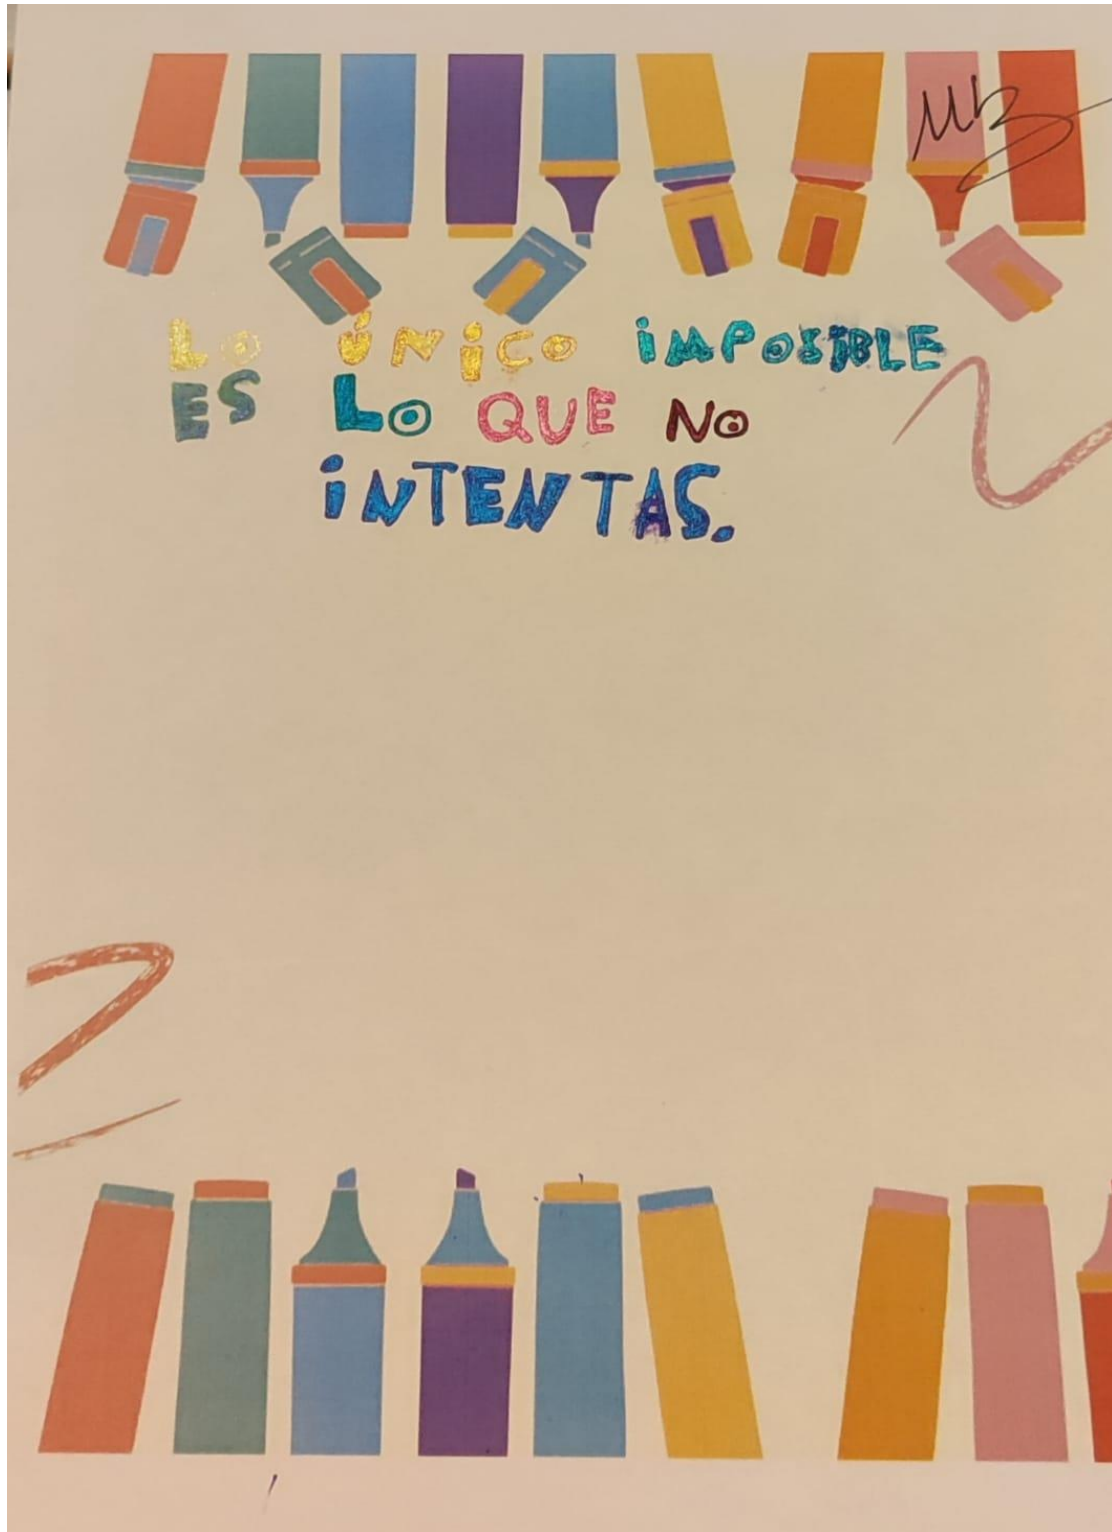 LO ÚNiCO iMPOSiBLE
ES LO QUE NO
iNTENTAS.